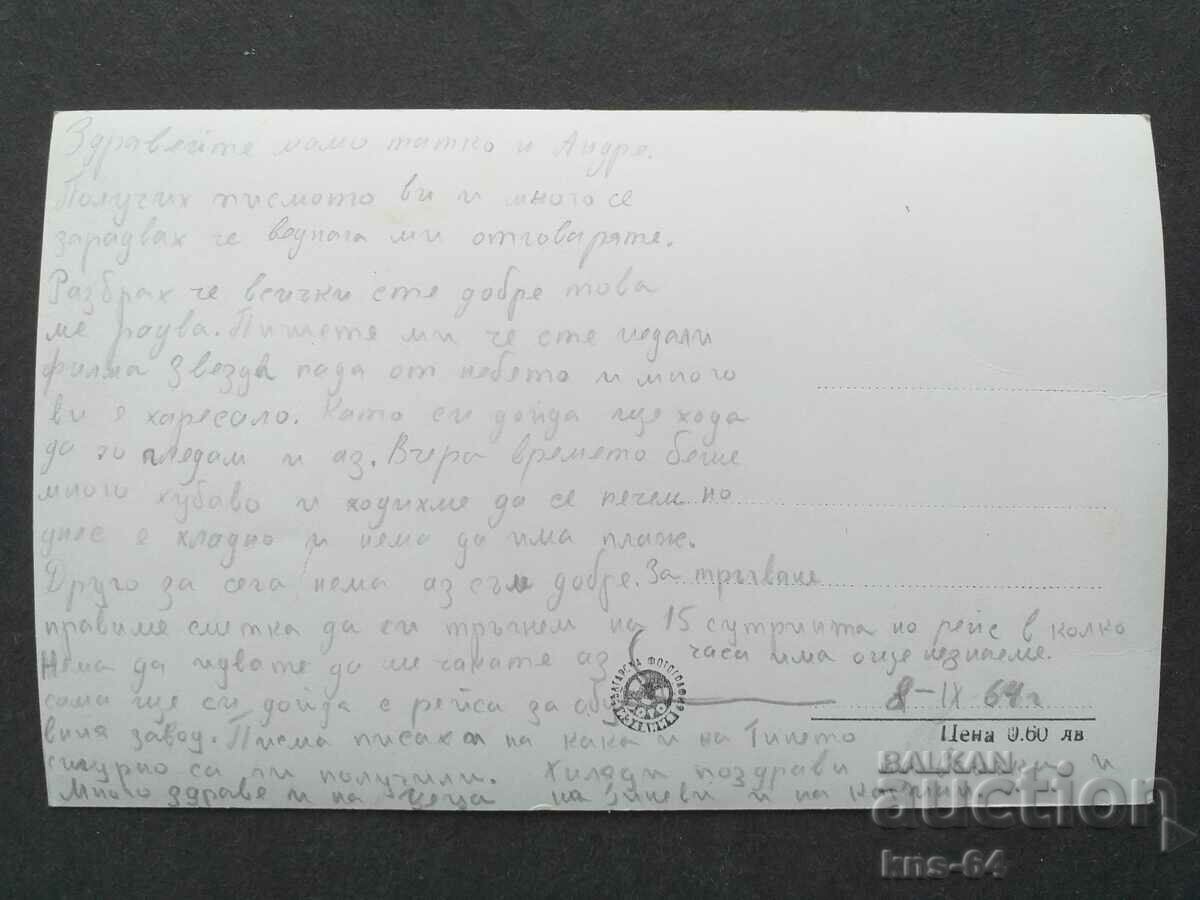 Здравейте мамо татко и Андре.
Получих писмото ви и много се
зарадвах че веднага ми отговаряте.
Разбрах че всички сте добре това
ме радва. Пишете ми че сте гледали
филма Звезда пада от небето и много
ви е харесало. Като си дойда ще ходя
да го гледам и аз. Вчера времето беше
много хубаво и ходихме да се печем но
днес е хладно и нема да има плаж.
Друго за сега нема аз съм добре. За тръгване
правиме сметка да си тръгнем на 15 сутринта но рейс в колко
часа има още незнаеме.
Нема да идвате да ме чакате аз
сама ще си дойда с рейса за
вния завод. Писма писах и на кака и на
сигурно са ги получили. Хиляди поздрави
Много здраве и на на и на
8-IX 64 г
БЪЛГАРСКА ФОТОГРАФИЯ
Цена 0.60 лв
BALKAN
AUCTION
kns-64